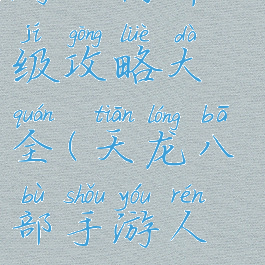 jí gōng lüè dà
级攻略大
quán tiān lóng bā
全(天龙八
bù shǒu yóu rén
部手游人